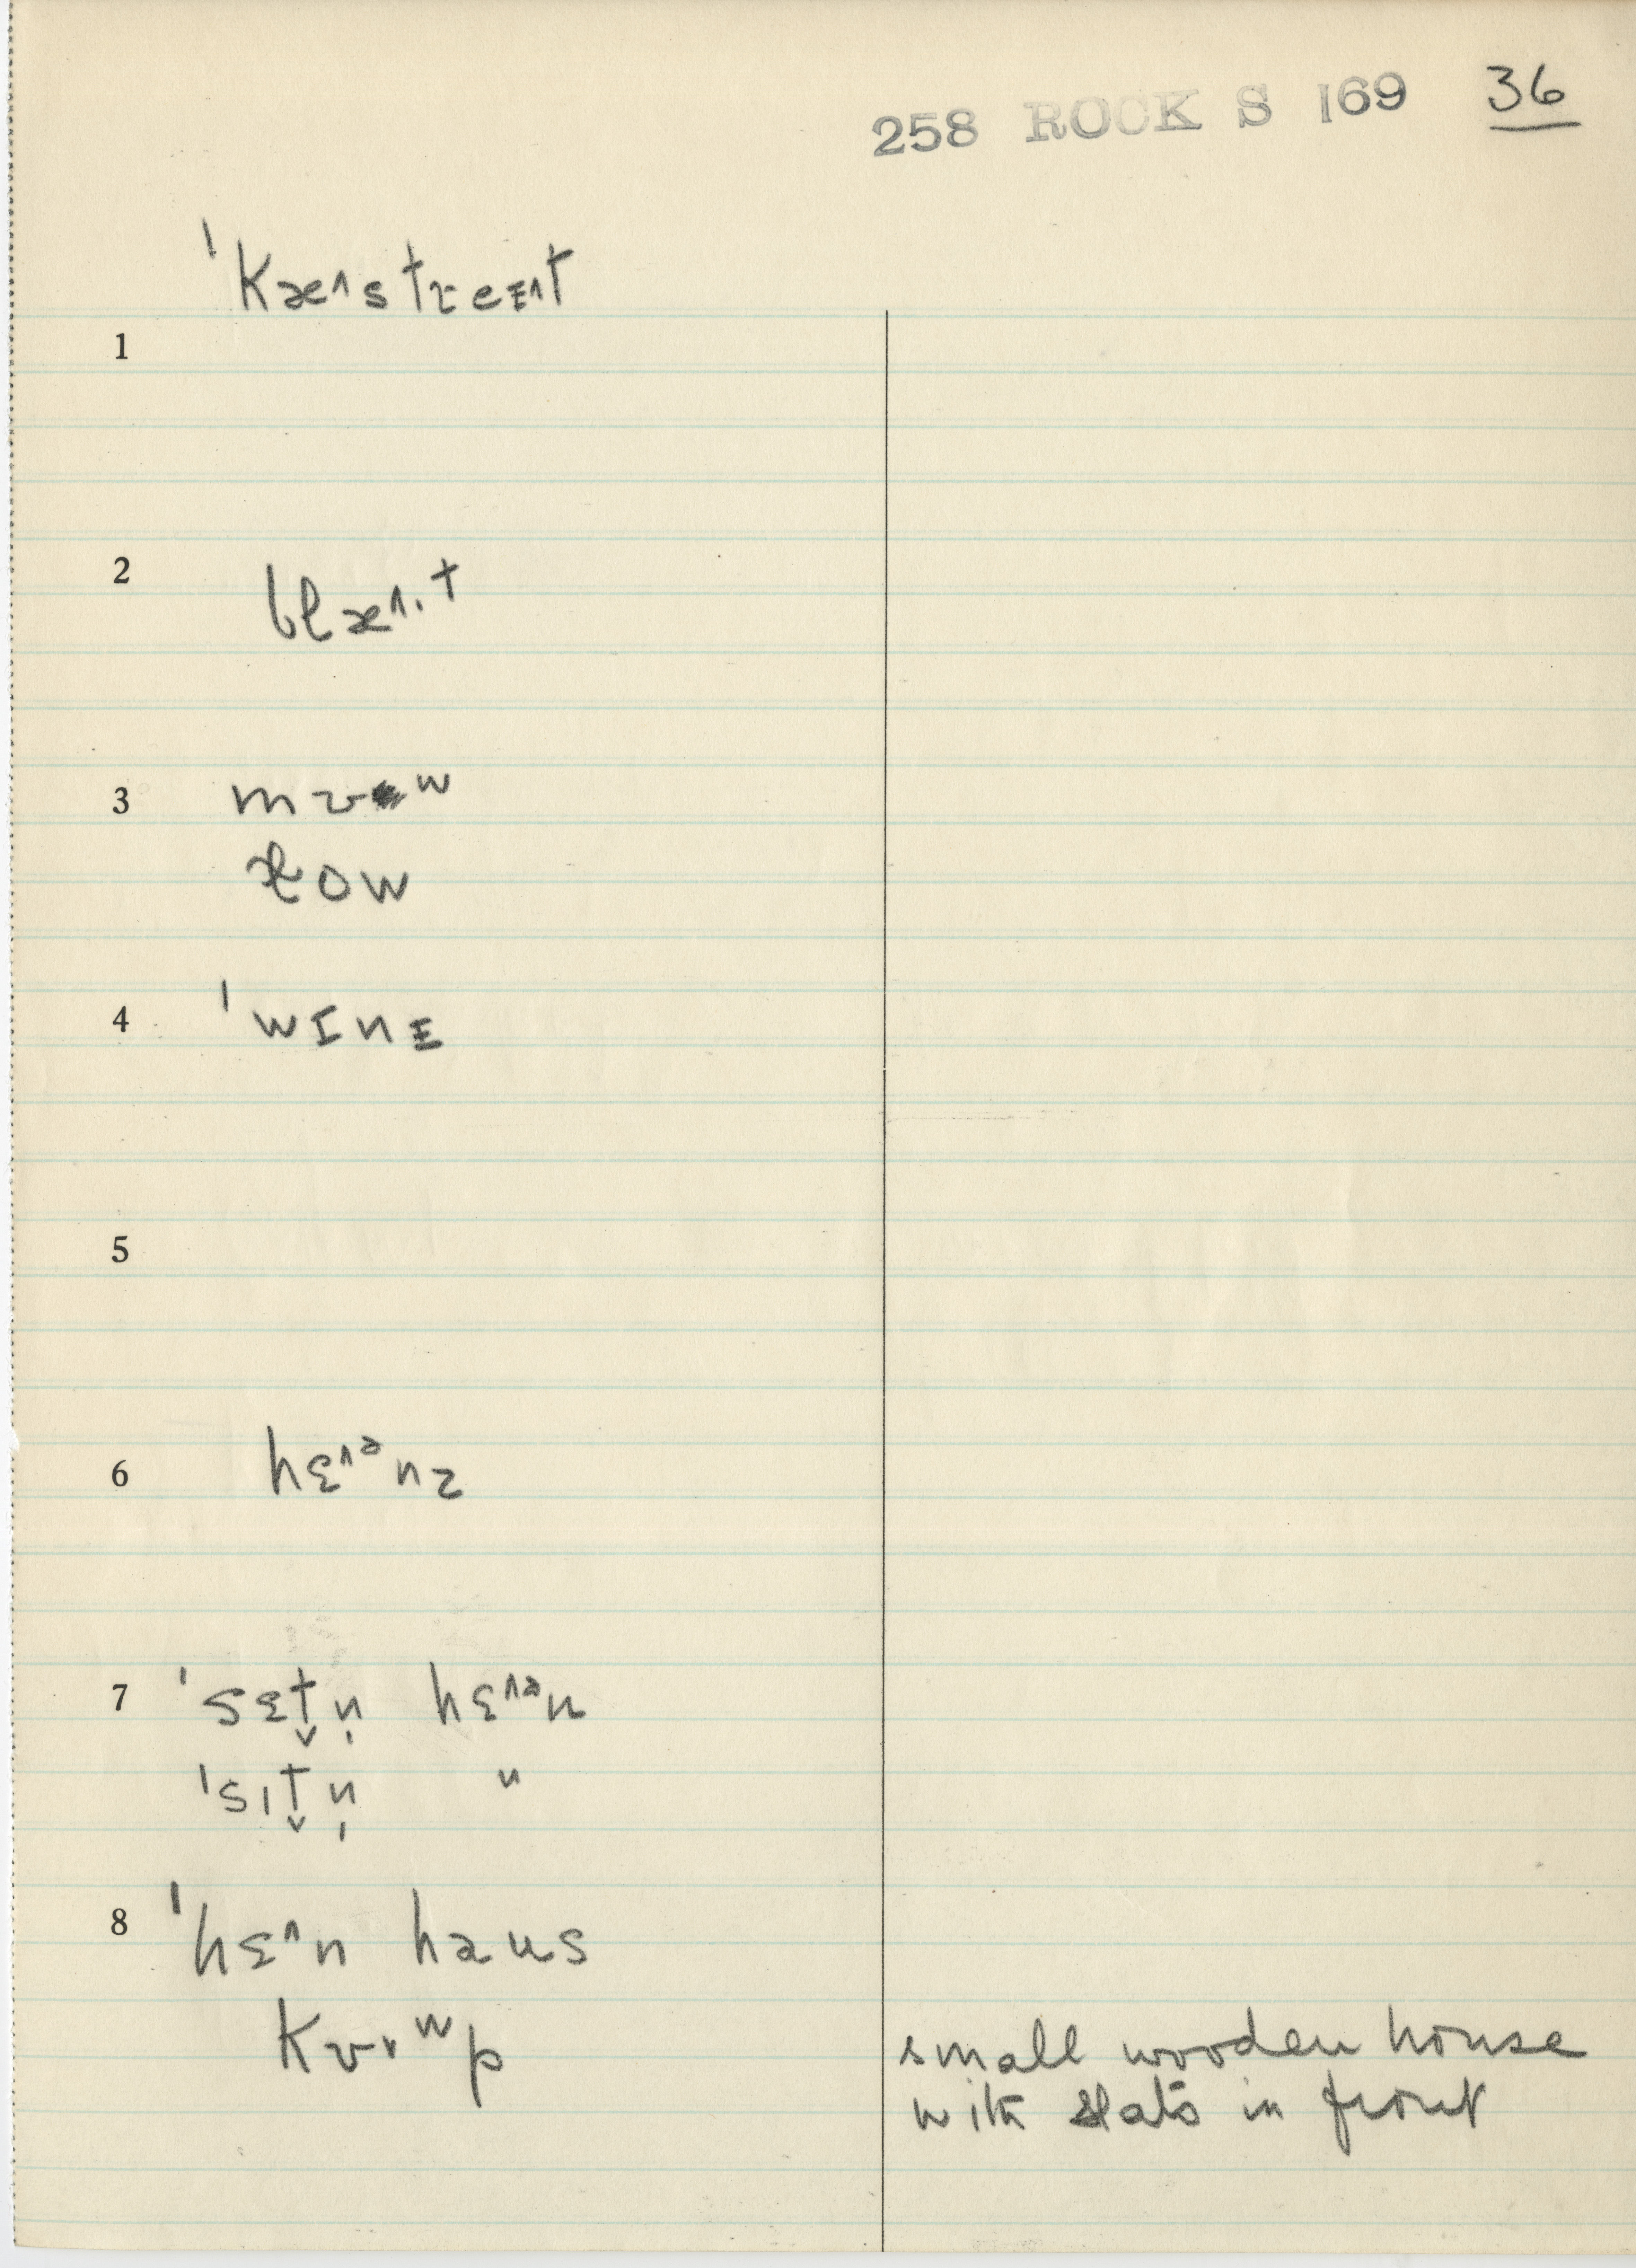 258 ROCK S 169 36
ˈkæ˄streᴇ˄t
1
2 blæ˄·t
3 mʊʷ
loʷ
4 ˈwɪnᴇ
5
6 hɛ˄ᵊnz
7 ˈsɛt̬n̩ hɛ˄ᵊn
ˈsɪt̬n̩ "
8 ˈhɛ˄n haus
kʊ˅ʷp small wooden house
with slats in front